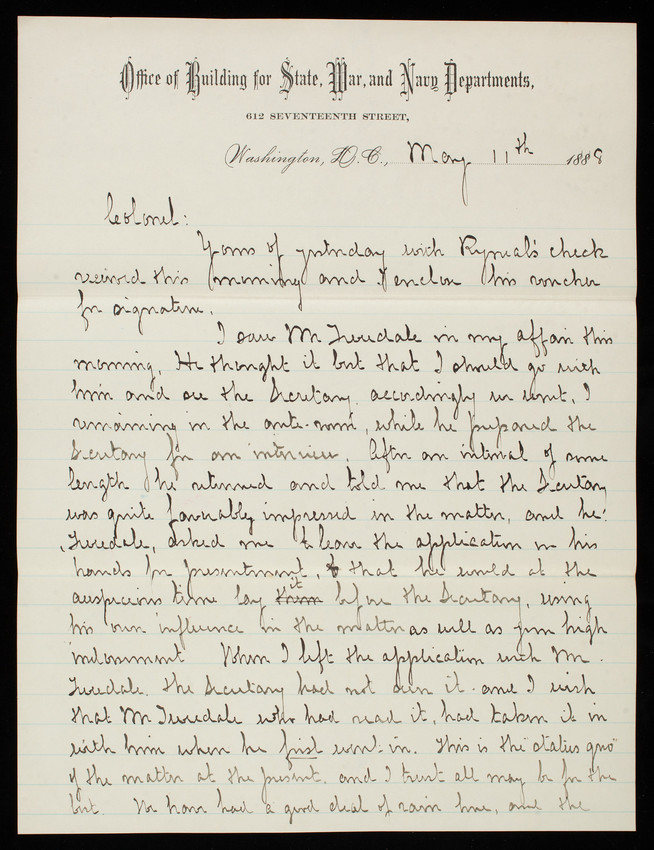 Office of Building for State, War, and Navy Departments,
612 SEVENTEENTH STREET,
Washington, D.C., May 11th 1888
Colonel:
Yours of yesterday with check
received this morning and I enclose his voucher
for signature.
I saw Mr Tweedale in my affair this
morning. He thought it best that I should go with
him and see the Secretary, accordingly we went, I
remaining in the ante-room, while he prepared the
Secretary for an interview. After an interval of some
length he returned and told me that the Secretary
was quite favorably impressed in the matter, and he:
Tweedale, asked me to leave the application in his
hands for presentment, & that he would at the
auspicious time lay them it before the Secretary, using
his own influence in the matter as well as your high
indorsement When I left the application with Mr.
Tweedale. the Secretary had not seen it. and I wish
that Mr Tweedale who had read it, had taken it in
with him when he first went in. This is the "status quo"
of the matter at the present. and I trust all may be for the
best. We have had a good deal of rain here, and the